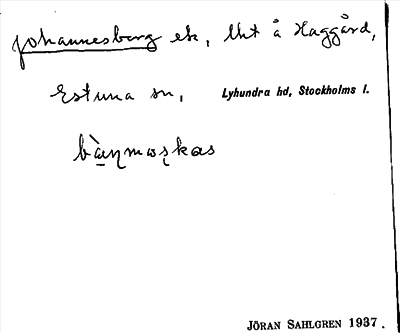 Johannesberg ek, Ust å Haggård,
Estuna sn, Lyhundra hd, Stockholms l.
JÖRAN SAHLGREN 1937.